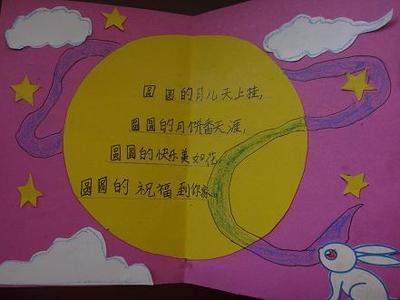 圆圆的月儿天上挂,
圆圆的月饼香天涯,
圆圆的快乐美如花,
圆圆的祝福到你家。